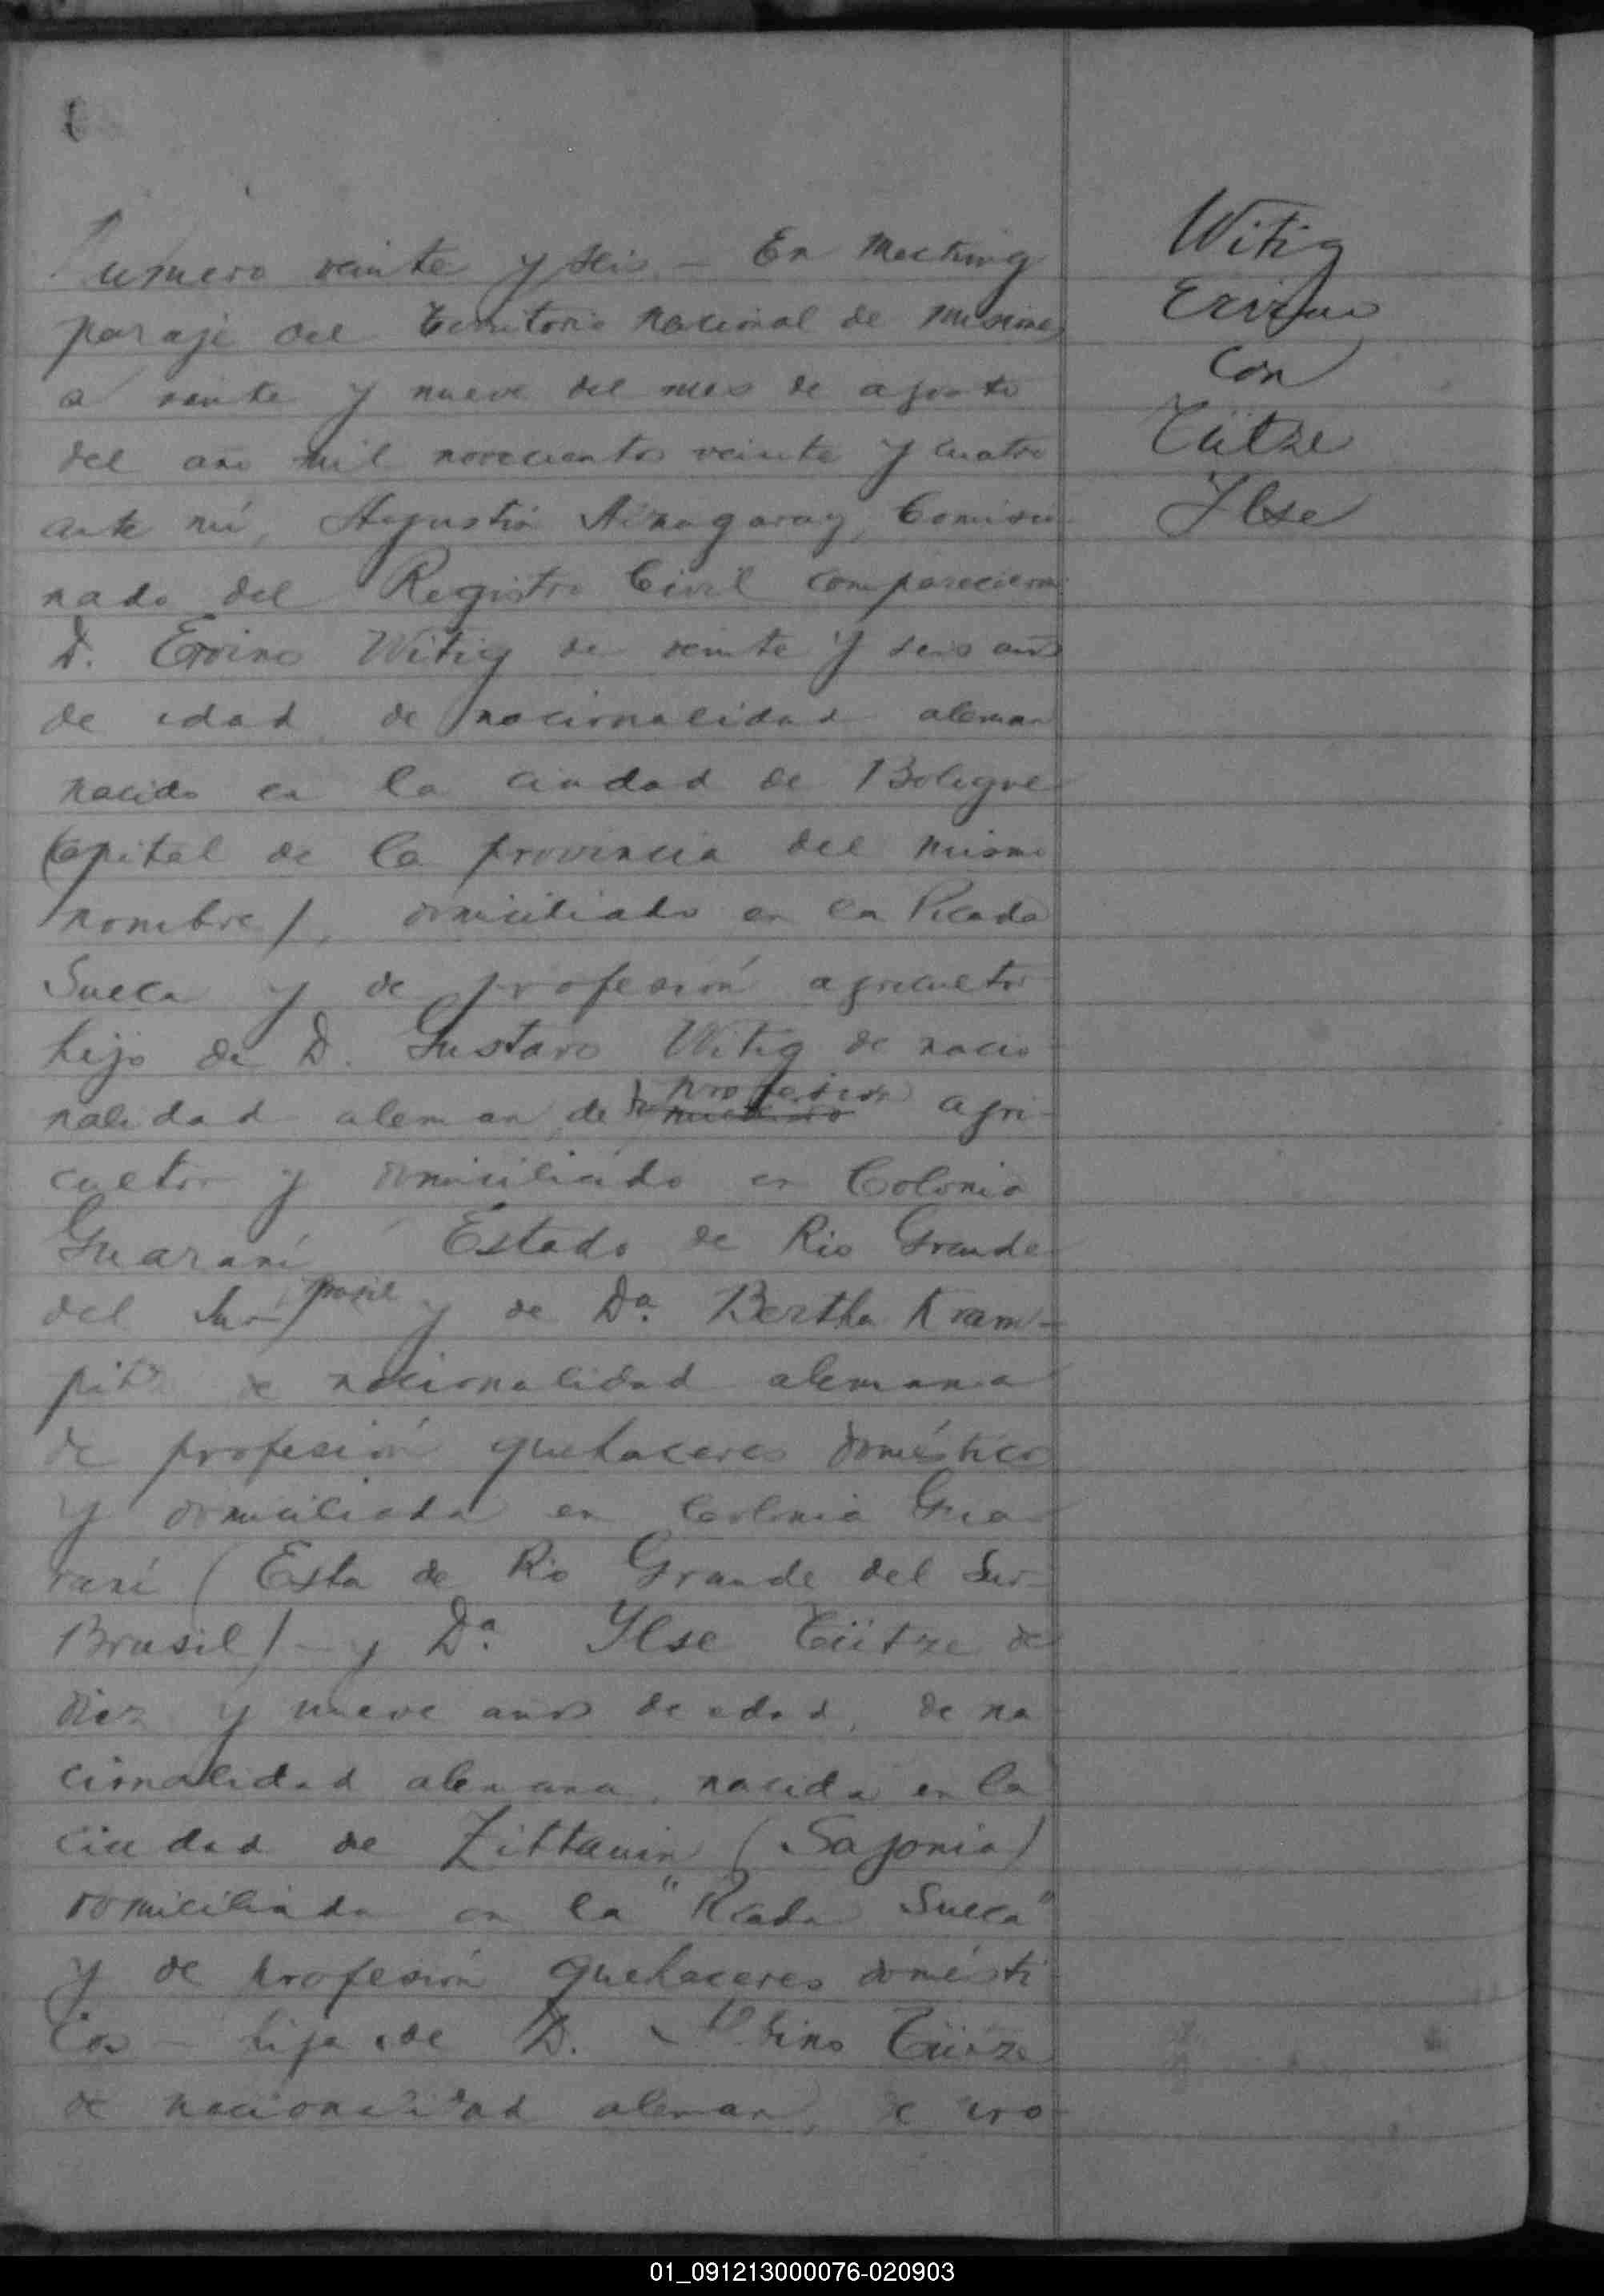 Witig
Ervino
con
Tütze
Ilse
Numero veinte y seis – En Mecking
paraje del Territorio Nacional de Misiones
a veinte y nueve del mes de agosto
del año mil novecientos veinte y cuatro
ante mí, Agustín Aizagaray, Comisio-
nado del Registro Civil comparecieron
D. Ervino Witig de veinte y seis años
de edad, de nacionalidad aleman
nacido en la ciudad de
(Capital de la provincia del mismo
nombre), domiciliado en la Picada
Sueca y de profesión agricultor
hijo de D. Gustavo Witig de nacio-
nalidad aleman, de profesion agri-
cultor y domiciliado en Colonia
Guaraní Estado de Rio Grande
del Sur, Brasil y de Da. Bertha Kram-
pitz de nacionalidad alemana
de profesión quehaceres domésticos
y domiciliada en Colonia Gua-
raní (Esta de Rio Grande del Sur-
Brasil) – y Da. Ylse Tütze de
diez y nueve años de edad, de na-
cionalidad alemana, nacida en la
ciudad de Zittauin (Sajonia)
domiciliada en la "Picada Sueca"
y de profesión quehaceres domésti-
cos – hija de D. Tütze
de nacionalidad aleman, de pro-
01_091213000076-020903